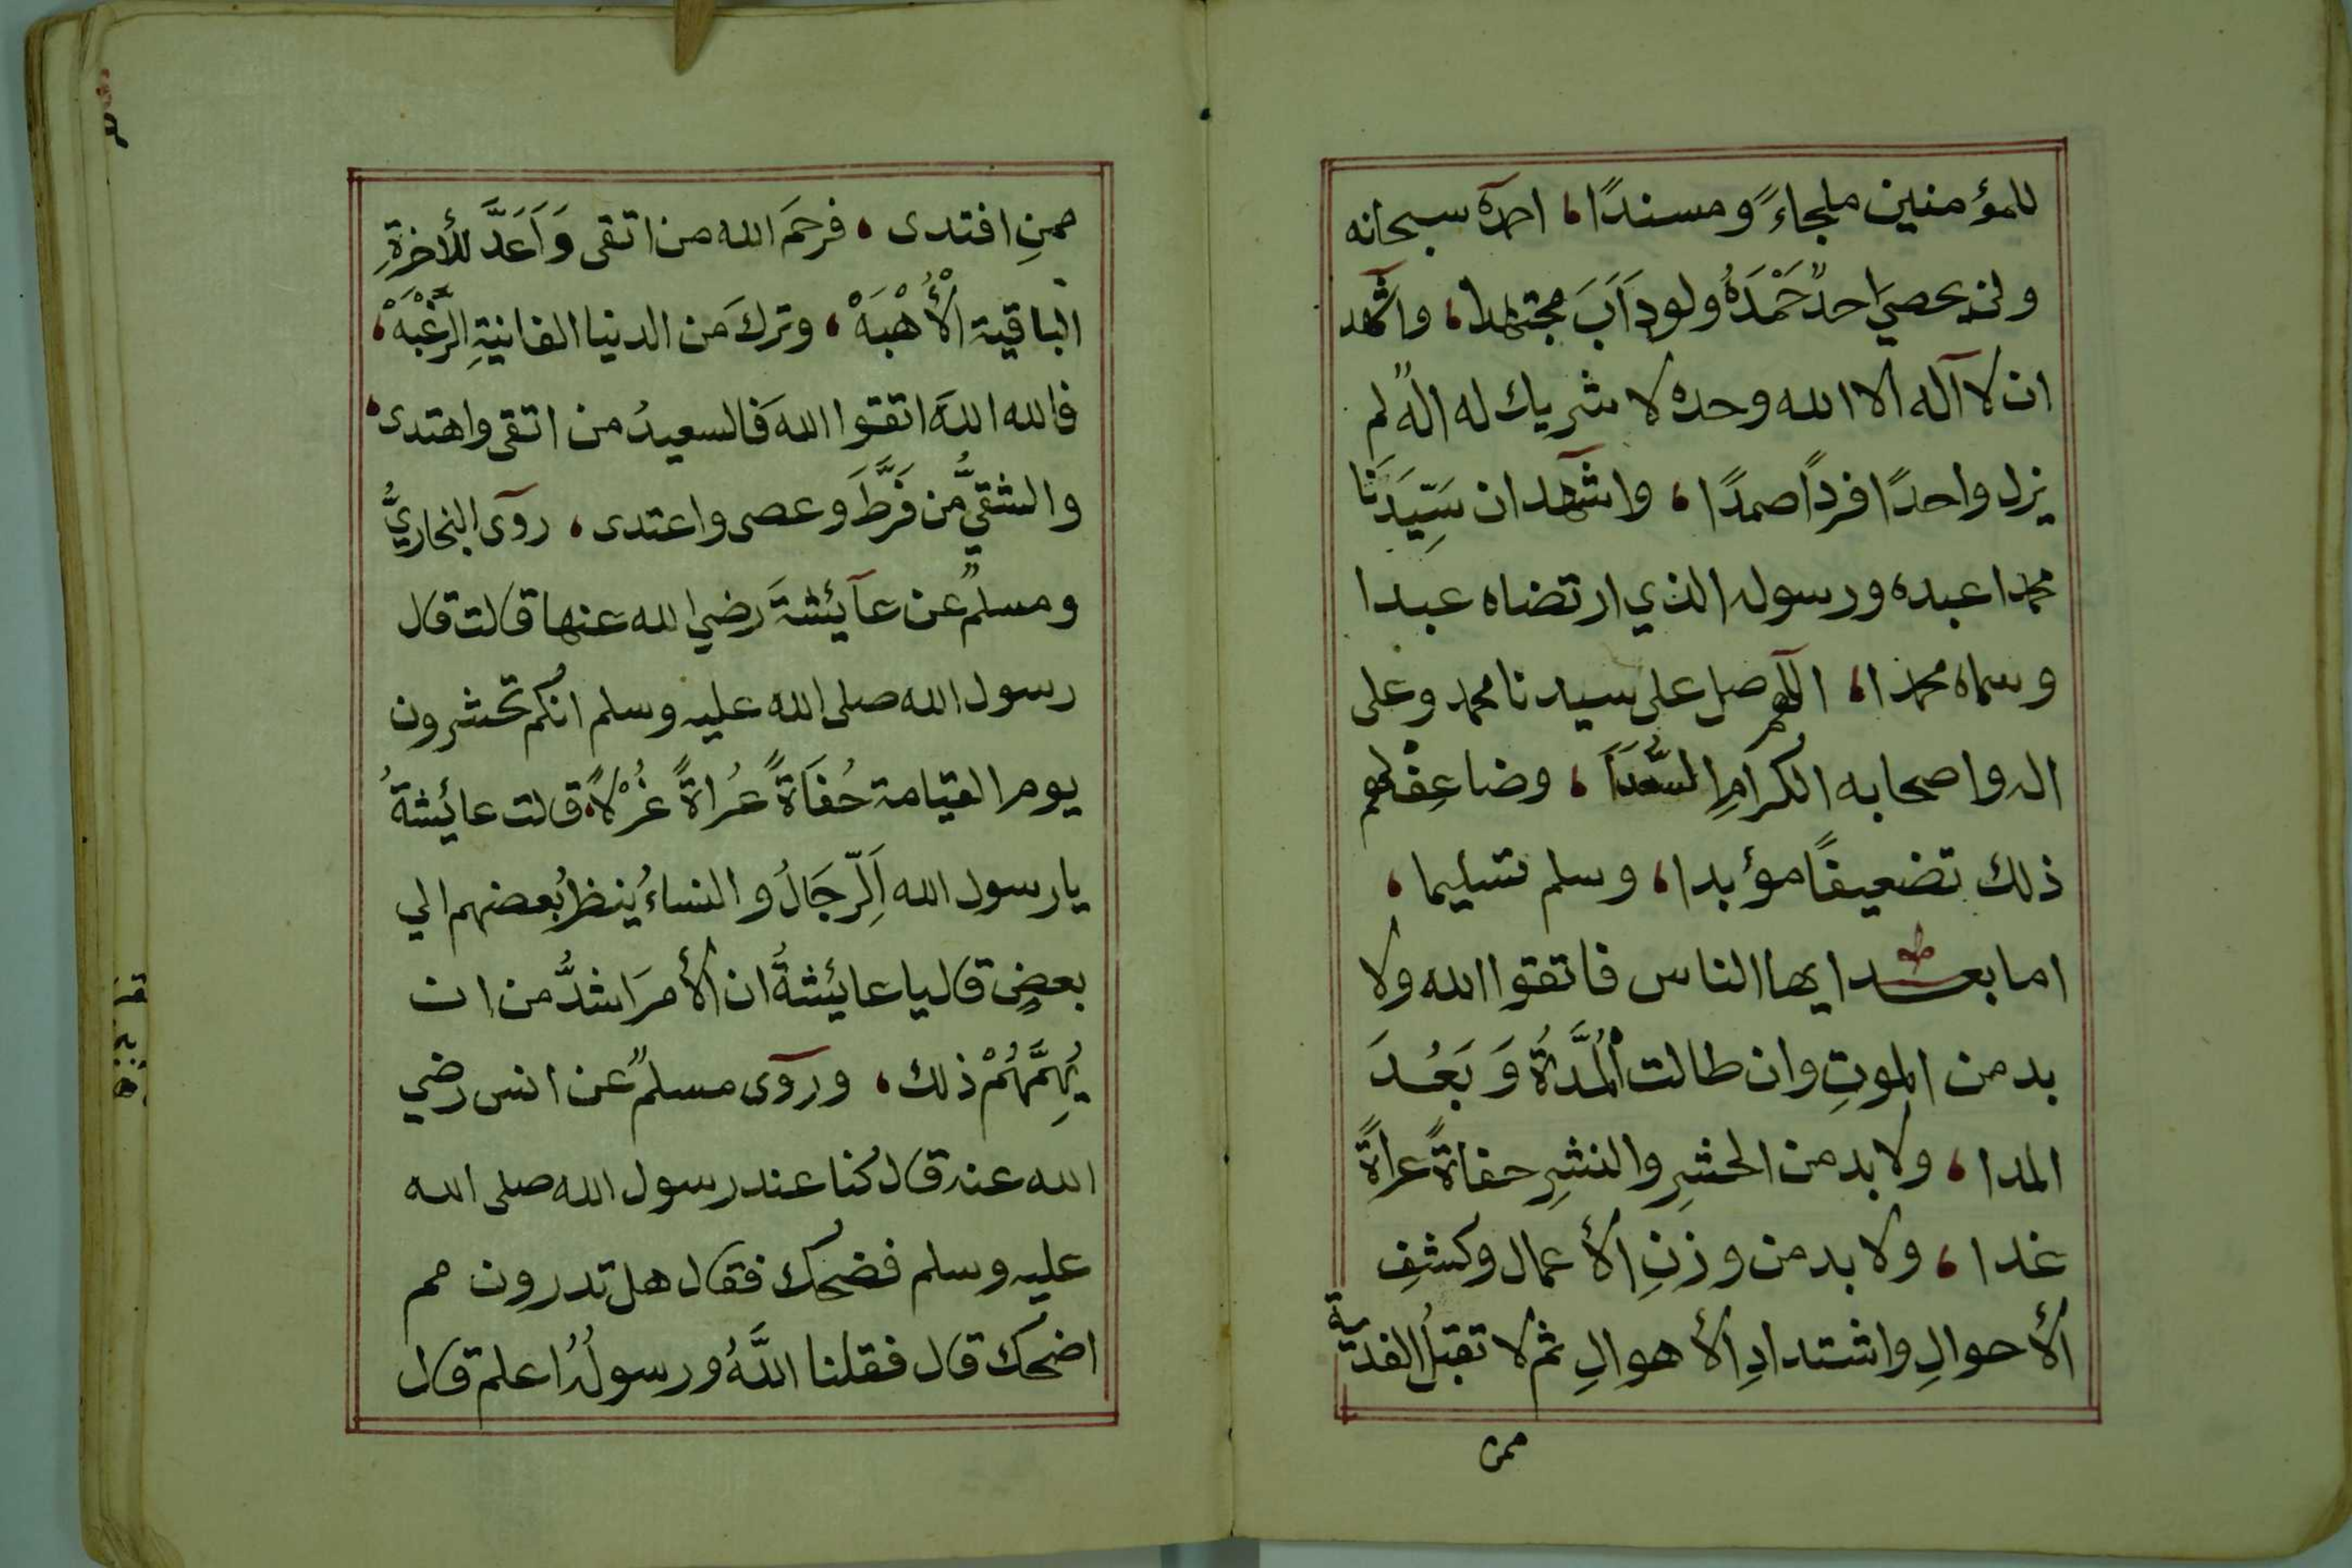 للمؤمنين ملجاءً ومسندًا، احمده سبحانه
ولن يحصيَ احدٌ حَمْدَهُ ولو دَاَبَ مجتهدا، واشهد
ان لا آله الا الله وحده لا شريك له الهٌ لم
يزل واحدًا فردًا صمدًا، واشهد ان سَيِّدَنَا
محمدا عبده ورسوله الذي ارتضاه عبدا
وسماه محمدا، اللهم صل على سيدنا محمد وعلى
اله واصحابه الكرامِ السُّعَدَاَ، وضاعِفْ لهم
ذلك تضعيفًا مؤبدا، وسلم تسليما،
اما بعد ايها الناس فاتقوا الله ولا
بد من الموتِ وان طالت الْمُدَّةُ وَبَعُدَ
المدا، ولا بد من الحشرِ والنشرِ حفاةً عراةً
غدا، ولا بد من وزنِ الأعمال وكشفِ
الأحوالِ واشتدادِ الأهوالِ ثم لا تقبلُ الفدية
ممن
ممنِ افتدى، فرحمَ الله من اتقى وَاَعَدَّ للأخرةِ
الباقية الْأُهْبَهْ، وتركَ من الدنيا الفانيةِ الرَّغْبَهْ،
فالله اللهَ اتقوا اللهَ فالسعيدُ من اتقى واهتدى،
والشقيُّ من فَرَّطَ وعصى واعتدى، روى البخاريُّ
ومسلمٌ عن عآئشةَ رضي الله عنها قالت قال
رسول الله صلى الله عليه وسلم انكم تحشرون
يوم القيامة حُفَاةً عُراةً غُرْلًا، قالت عائشةُ
يا رسول الله اَلرِّجَالُ والنساءُ ينظرُ بعضهم الي
بعضٍ قال يا عايئشةُ ان الأمرَ اشدُّ من ان
يُهِمَّهُمْ ذلك، وروى مسلمٌ عن انس رضي
الله عنه قال كنا عند رسول الله صلى الله
عليه وسلم فضحك فقال هل تدرون مم
اضحك قال فقلنا اللَّهُ ورسولُهُ اعلم قال